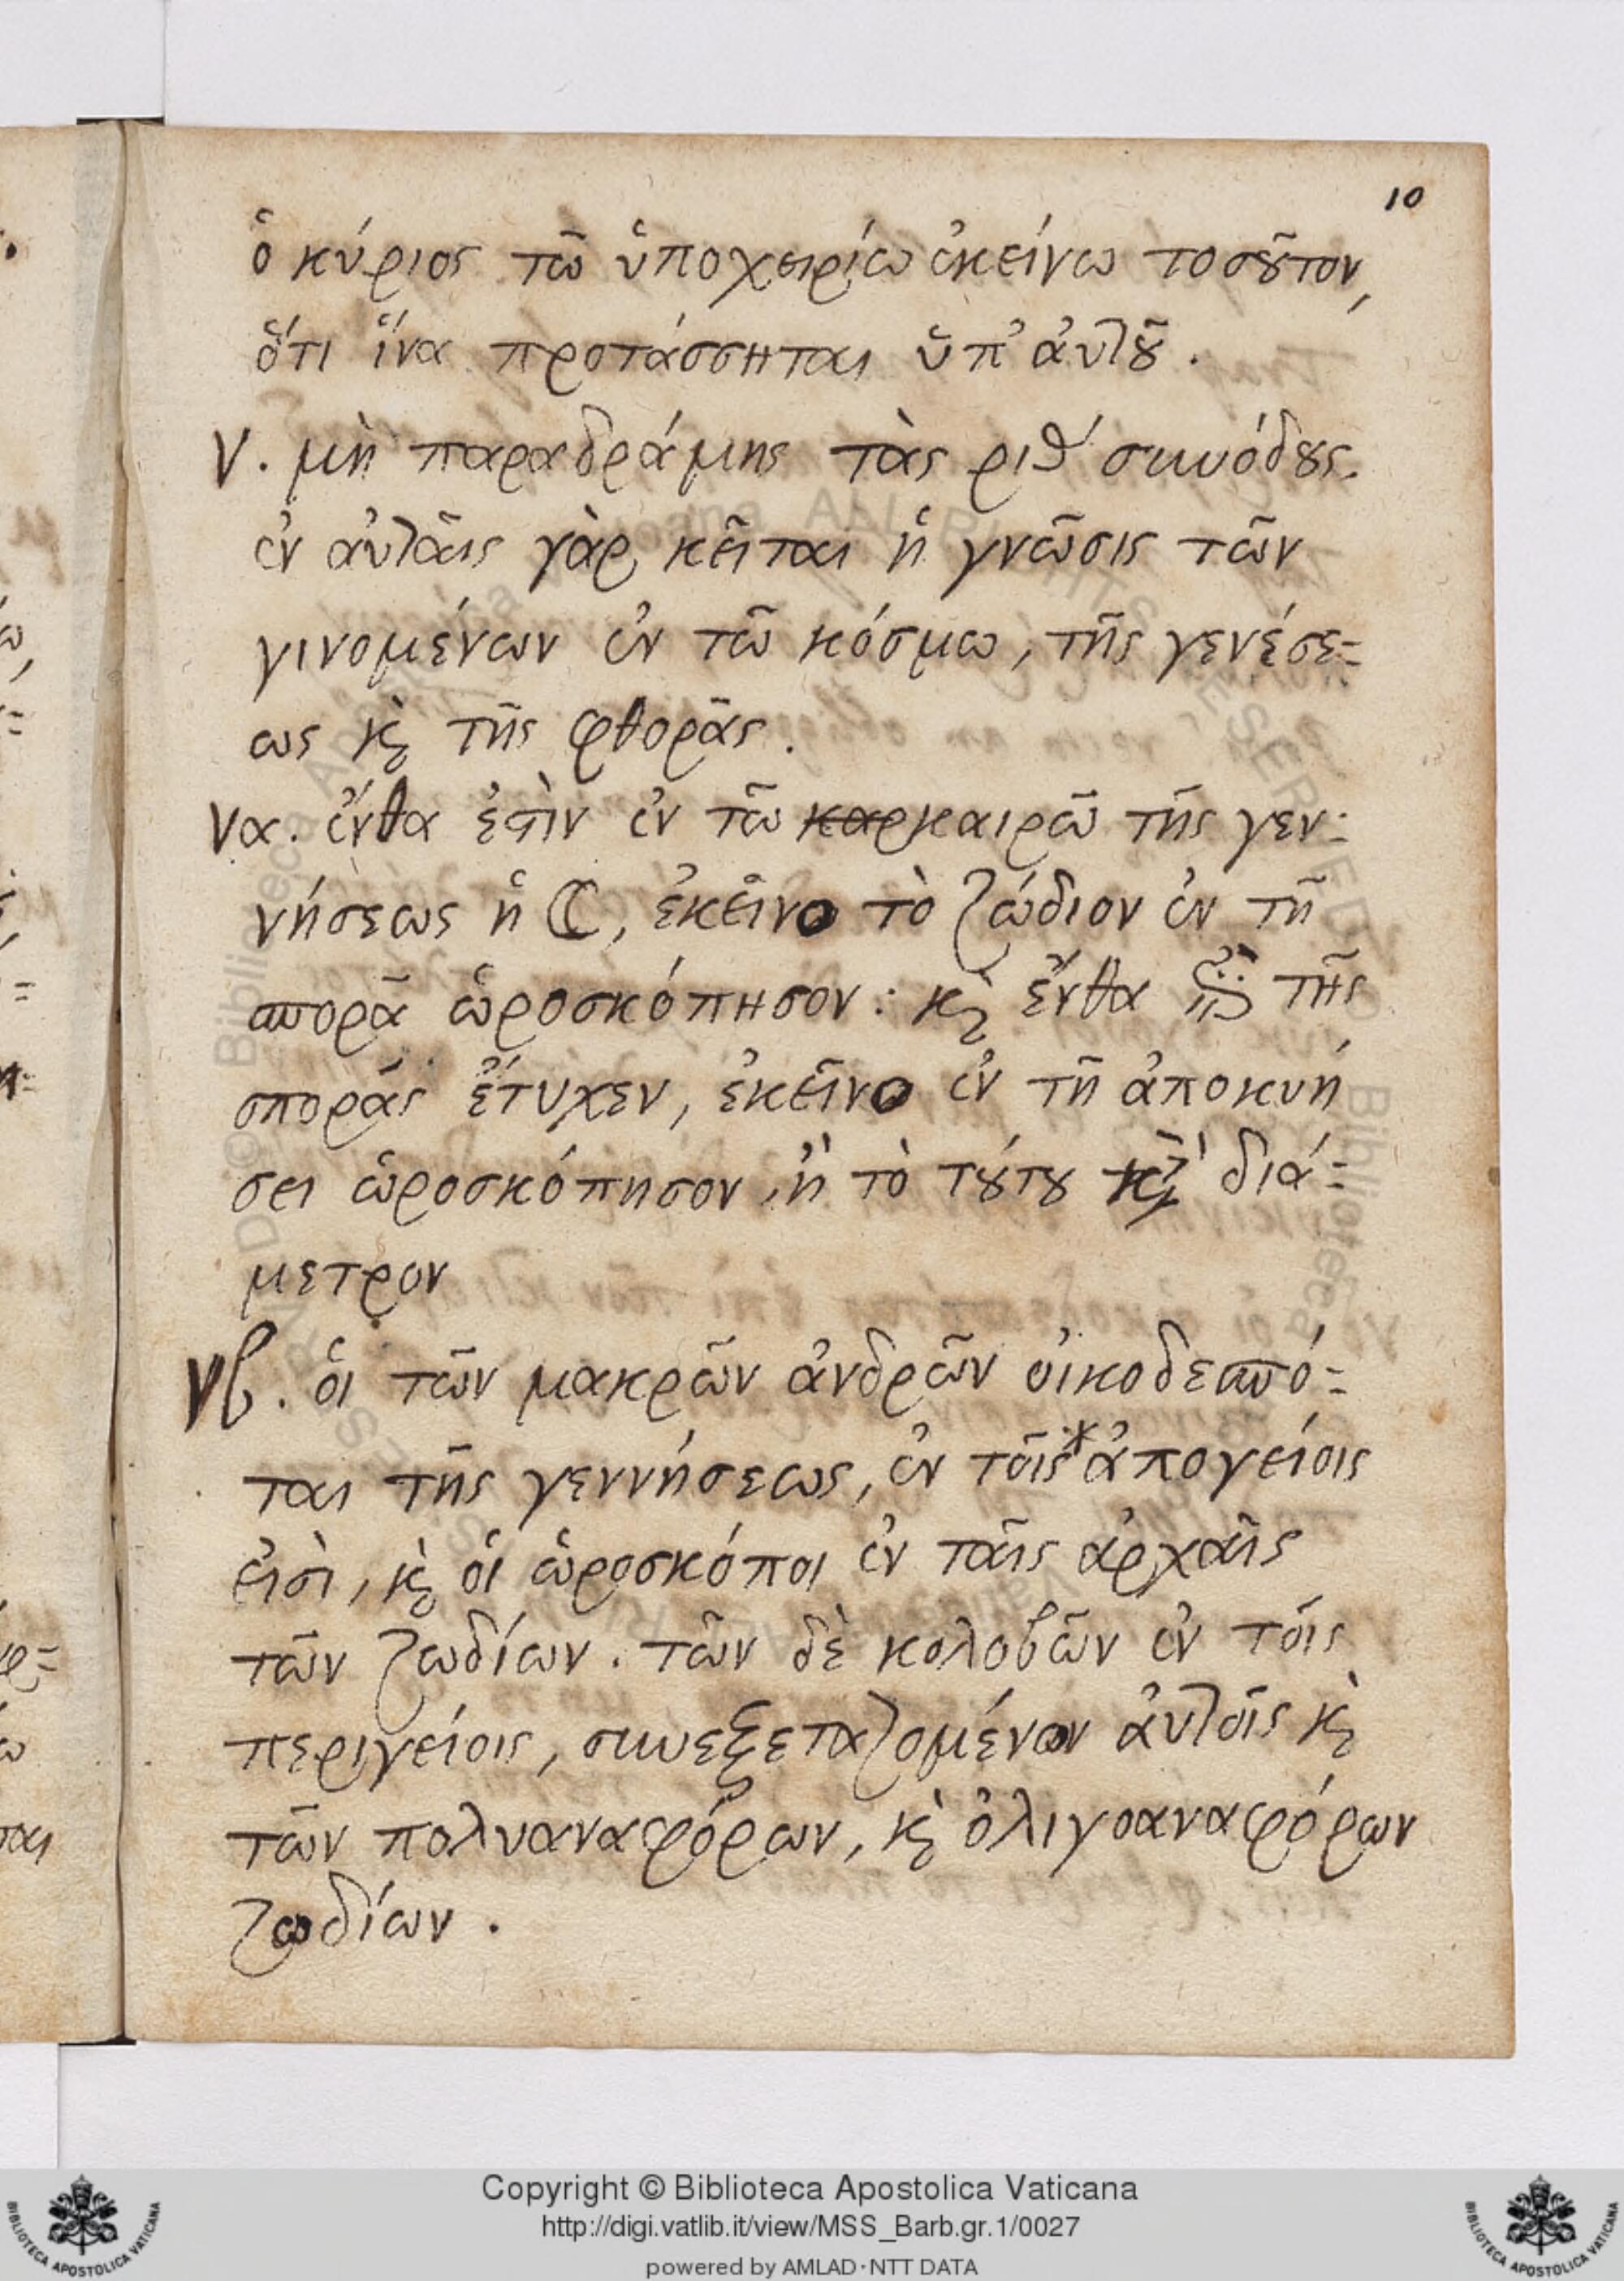 10
ὁ κύριος τῶ ὑποχειρίω ἐκείνω τοσȣ̃τον,
ὅτι ἵνα προτάσσηται ὑπ' ἀυτȣ̃.
ν. μὴ παραδράμης τὰς ριθ' συνόδȣς.
ἐν ἀυταῖς γὰρ κεῖται ἡ γνῶσις τῶν
γινομένων ἐν τῶ κόσμω, τῆς γενέσε=
ως κ̀ τῆς φθορᾶς.
να. ἔνθα ἐστὶν ἐν τῶ καρκαιρῶ τῆς γεν:
νήσεως ἡ ☾, ἐκεῖνο τὸ ζώδιον ἐν τῆ
σπορᾶ ὡροσκόπησον: κ̀ ἔνθα τῆς
σπορᾶς ἔτυχεν, ἐκεῖνο ἐν τῆ ἀποκυή
σει ὡροσκόπησον, ἢ τὸ τȣ́τȣ διά=
μετρον
νβ. ὁι τῶν μακρῶν ἀνδρῶν ὀικοδεσπό=
ται τῆς γεννήσεως, ἐν τοῖς* ἀπογείοις
ἐισὶ, κ̀ ὁι ὡροσκόποι ἐν ταῖς ἀρχαῖς
τῶν ζωδίων. τῶν δὲ κολοβῶν ἐν τοῖς
περιγείοις, συνεξεταζομένων ἀυτοῖς κ̀
τῶν πολυαναφόρων, κ̀ ὀλιγοαναφόρων
ζωδίων.
Copyright © Biblioteca Apostolica Vaticana
http://digi.vatlib.it/view/MSS_Barb.gr.1/0027
powered by AMLAD·NTT DATA
BIBLIOTECA APOSTOLICA VATICANA
BIBLIOTECA APOSTOLICA VATICANA